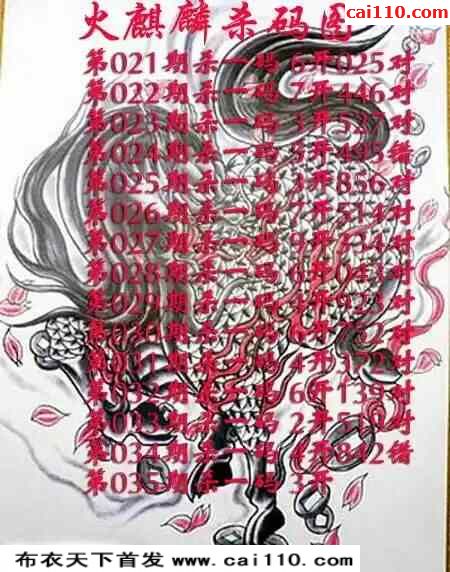 cai110.com
火麒麟杀码图
第021期杀一码 6开025对
第022期杀一码 7开446对
第023期杀一码 3开527对
第024期杀一码 5开495错
第025期杀一码 3开856对
第026期杀一码 7开514对
第027期杀一码 9开734对
第028期杀一码 6开043对
第029期杀一码 开923对
第030期杀一码 开 对
第031期杀一码 4开372对
第032期杀一码 6开139对
第033期杀一码 2开 对
第034期杀一码 4开842错
第035期杀一码 3开
布衣天下首发 www.cai110.com